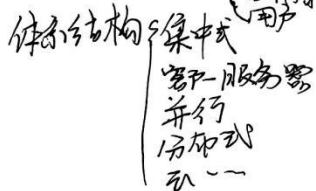 用户
体系结构 集中式
客户-服务器
并行
分布式
云